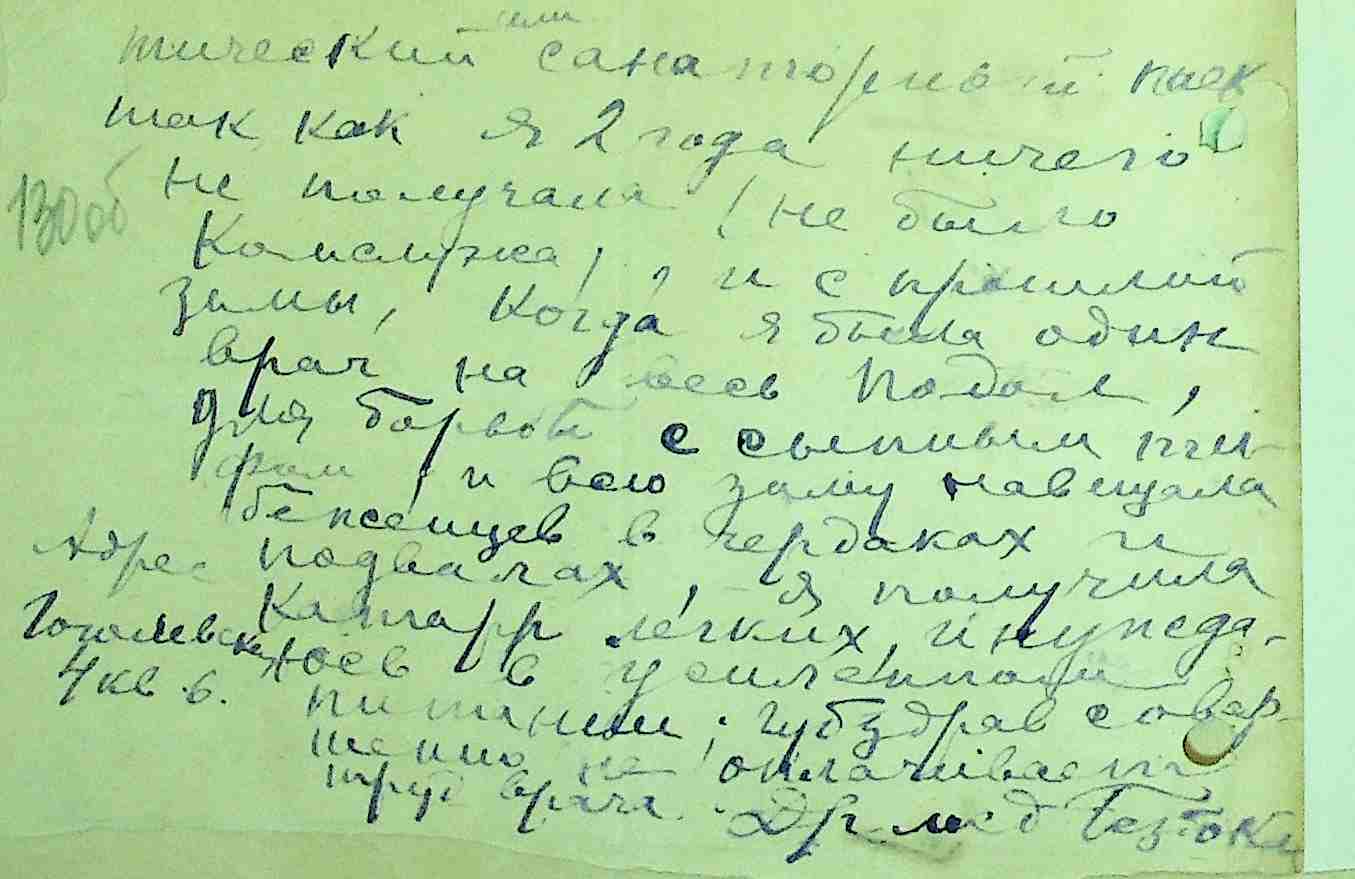 или
тический санаторный паек
так как я 2 года ничего
не получала (не было
Комслужа), и с прошлой
зимы, когда я была один
врач на весь Подол,
для борьбы с сыпным ти-
фом, и всю зиму навещала
беженцев в чердаках и
подвалах, я получила
катарр лёгких, и нужда-
юсь в усиленном
питании; губздрав совер-
шенно не оплачивает
труд врача. Др мед
130об
Адрес
Гоголевск
4 кв 6.